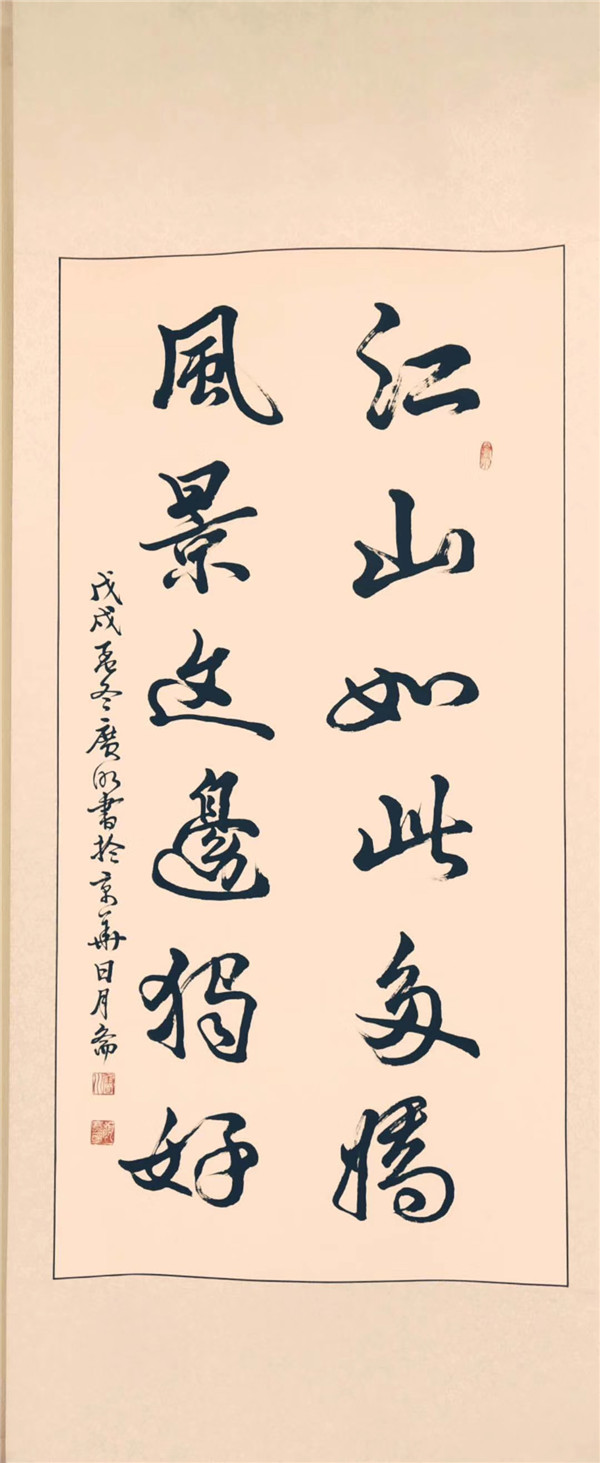 江山如此多嬌
風景这邊獨好
戊戌孟冬廣你書於京華日月齋